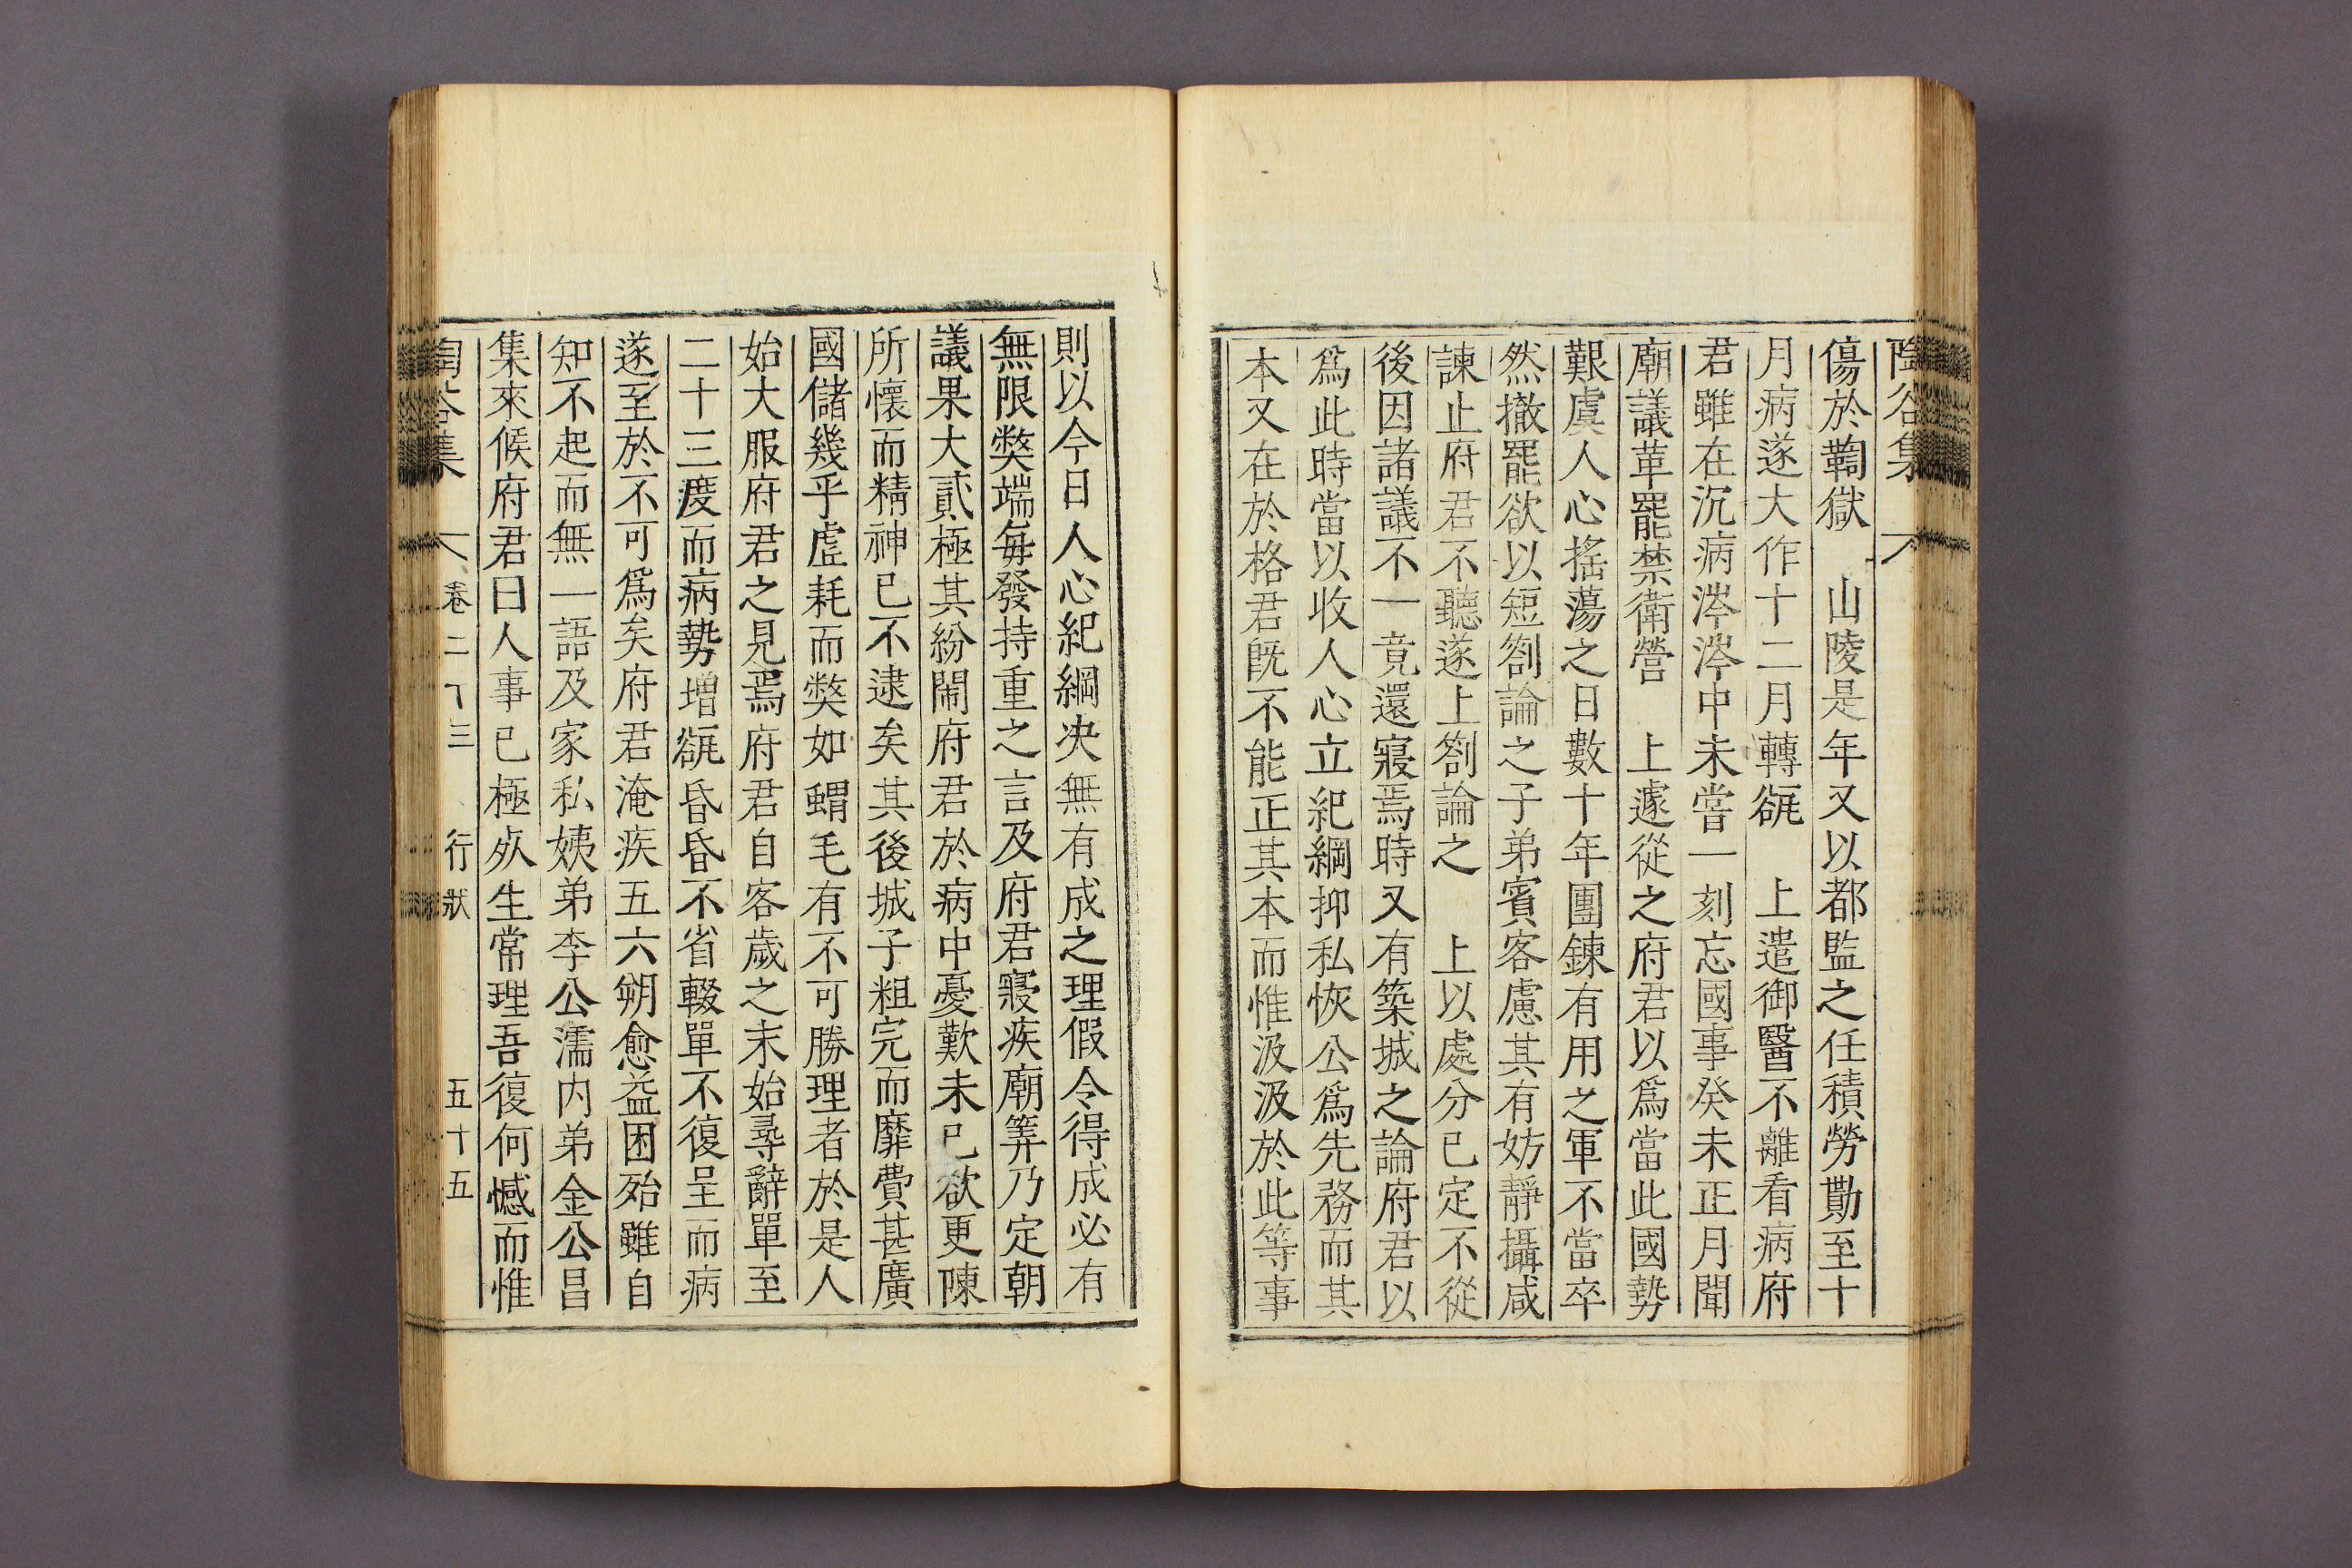 陶谷集
傷於鞫獄 山陵是年又以都監之任積勞勩至十
月病遂大作十二月轉㞃 上遣御醫不離看病府
君雖在沉病涔涔中未嘗一刻忘國事癸未正月聞
廟議革罷禁衛營 上遽從之府君以爲當此國勢
艱虞人心搖蕩之日數十年團鍊有用之軍不當卒
然撤罷欲以短劄論之子弟賓客慮其有妨靜攝咸
諫止府君不聽遂上劄論之 上以處分已定不從
後因諸議不一竟還寢焉時又有築城之論府君以
爲此時當以收人心立紀綱抑私恢公爲先務而其
本又在於格君旣不能正其本而惟汲汲於此等事
則以今日人心紀綱决無有成之理假令得成必有
無限獘端每發持重之言及府君寢疾廟筭乃定朝
議果大貳極其紛閙府君於病中憂歎未已欲更陳
所懷而精神已不逮矣其後城子粗完而靡費甚廣
國儲幾乎虛耗而獘如蝟毛有不可勝理者於是人
始大服府君之見焉府君自客歲之末始尋辭單至
二十三度而病勢增㞃昏昏不省輟單不復呈而病
遂至於不可爲矣府君淹疾五六朔愈益困殆雖自
知不起而無一語及家私姨弟李公濡內弟金公昌
集來候府君曰人事已極死生常理吾復何憾而惟
陶谷集 卷二十三 行狀 五十五